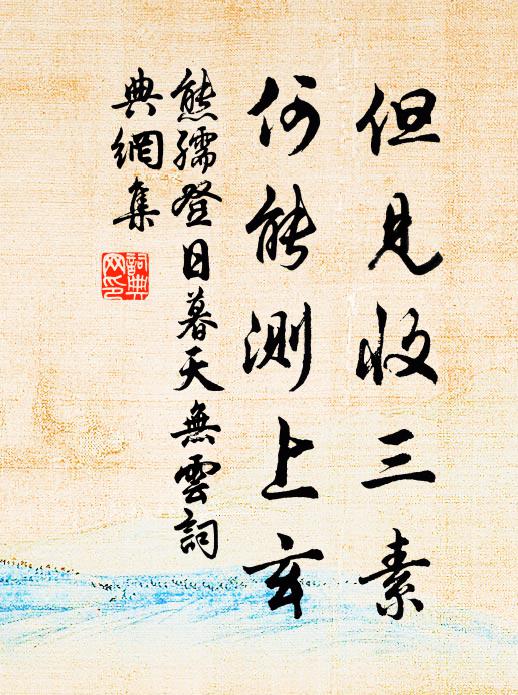 但見收三素
何能測上玄
熊孺登日暮天無雲詞
典網集
詞典
网印